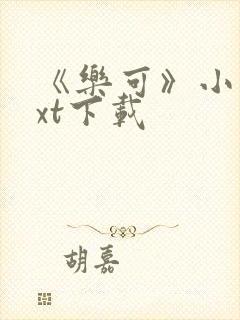 《樂可》小
xt下載
胡嘉